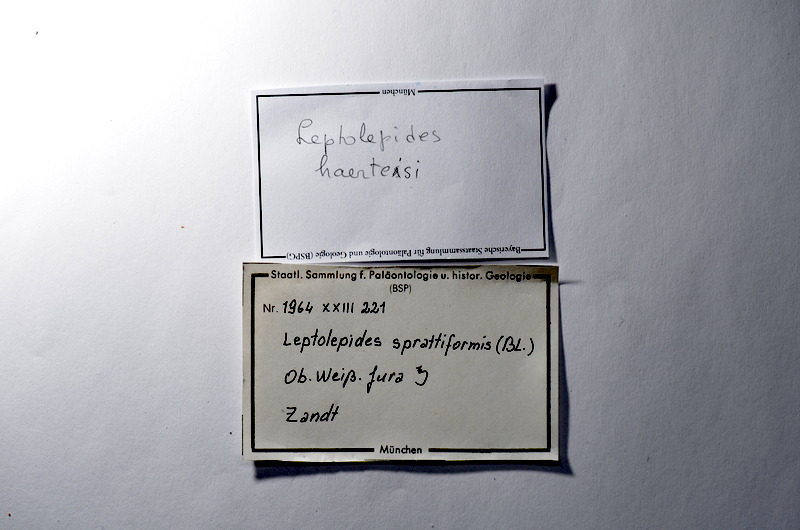 München
Leptolepides
haerteisi
Bayerische Staatssammlung für Paläontologie und Geologie (BSPG)
Staatl. Sammlung f. Paläontologie u. histor. Geologie
(BSP)
Nr. 1964 XXIII 221
Leptolepides sprattiformis (BL.)
Ob. Weiß. Jura
Zandt
München